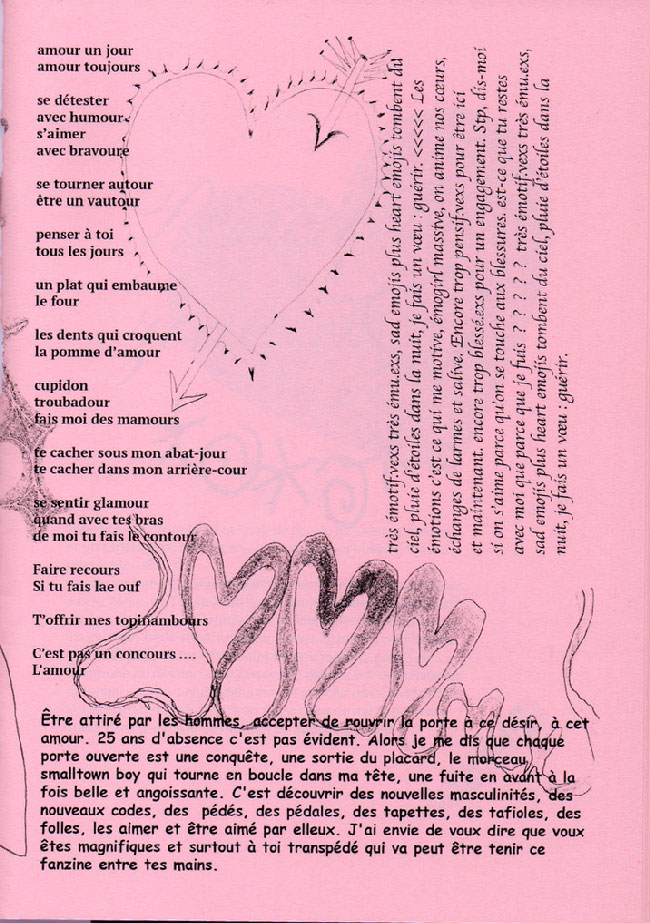 amour un jour
amour toujours
se détester
avec humour
s'aimer
avec bravoure
se tourner autour
être un vautour
penser à toi
tous les jours
un plat qui embaume
le four
les dents qui croquent
la pomme d'amour
cupidon
troubadour
fais moi des mamours
te cacher sous mon abat-jour
te cacher dans mon arrière-cour
se sentir glamour
quand avec tes bras
de moi tu fais le contour
Faire recours
Si tu fais lae ouf
T'offrir mes topinambours
C'est pas un concours ....
L'amour
très émotif.vexs très ému.exs, sad emojis plus heart emojis tombent du
ciel, pluie d'étoiles dans la nuit, je fais un vœu : guérir. <<<<< Les
émotions c'est ce qui me motive, émogirl massive, on anime nos cœurs,
échanges de larmes et salive. Encore trop pensif.vexs pour être ici
et maintenant, encore trop blessé.exs pour un engagement. Stp, dis-moi
si on s'aime parce qu'on se touche aux blessures, est-ce que tu restes
avec moi que parce que je fuis ? ? ? ? ? très émotif.vexs très ému.exs,
sad emojis plus heart emojis tombent du ciel, pluie d'étoiles dans la
nuit, je fais un vœu : guérir.
Être attiré par les hommes, accepter de rouvrir la porte à ce désir, à cet
amour. 25 ans d'absence c'est pas évident. Alors je me dis que chaque
porte ouverte est une conquête, une sortie du placard, le morceau
smalltown boy qui tourne en boucle dans ma tête, une fuite en avant à la
fois belle et angoissante. C'est découvrir des nouvelles masculinités, des
nouveaux codes, des pédés, des pédales, des tapettes, des tafioles, des
folles, les aimer et être aimé par elleux. J'ai envie de voux dire que voux
êtes magnifiques et surtout à toi transpédé qui va peut être tenir ce
fanzine entre tes mains.